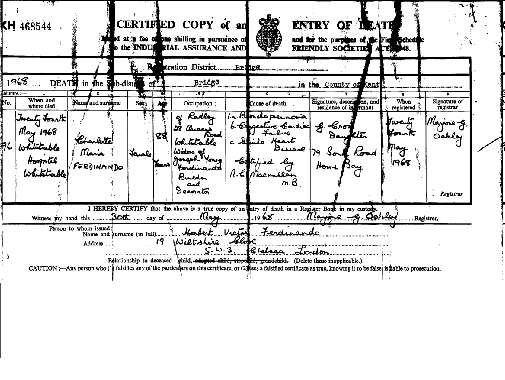 KH 468544
CERTIFIED COPY of an ENTRY OF DEATH
Issued at a fee of one shilling in pursuance of and for the purposes of the First Schedule
to the INDUSTRIAL ASSURANCE AND FRIENDLY SOCIETIES ACT, 1948.
Registration District Bridge
1968 DEATH in the Sub-district of Bridge in the County of Kent
No. When and where died Name and surname Sex Age Occupation Cause of death Signature, description, and residence of informant When registered Signature of registrar
Twenty Fourth May 1968 Whitstable Hospital Whitstable
Charlotte Maria FERDINANDO
Female
88 Years
Road Whitstable Widow of Joseph Ferdinando and
Certified by M.B.
Daughter 79 Road Herne Bay
Twenty Fourth May 1968
Marjorie G. Oakley
Registrar
I HEREBY CERTIFY that the above is a true copy of an entry of death in a Register Book in my custody.
Witness my hand this 30th day of May 1968 Marjorie G. Oakley Registrar.
Person to whom issued:
Name and surname (in full) Herbert Victor Ferdinando
Address 19 Wiltshire Close
S.W.3. Chelsea London
Relationship to deceased child, adopted child, stepchild, grandchild. (Delete those inapplicable.)
CAUTION:—Any person who (1) falsifies any of the particulars on this certificate, or (2) uses a falsified certificate as true, knowing it to be false, is liable to prosecution.